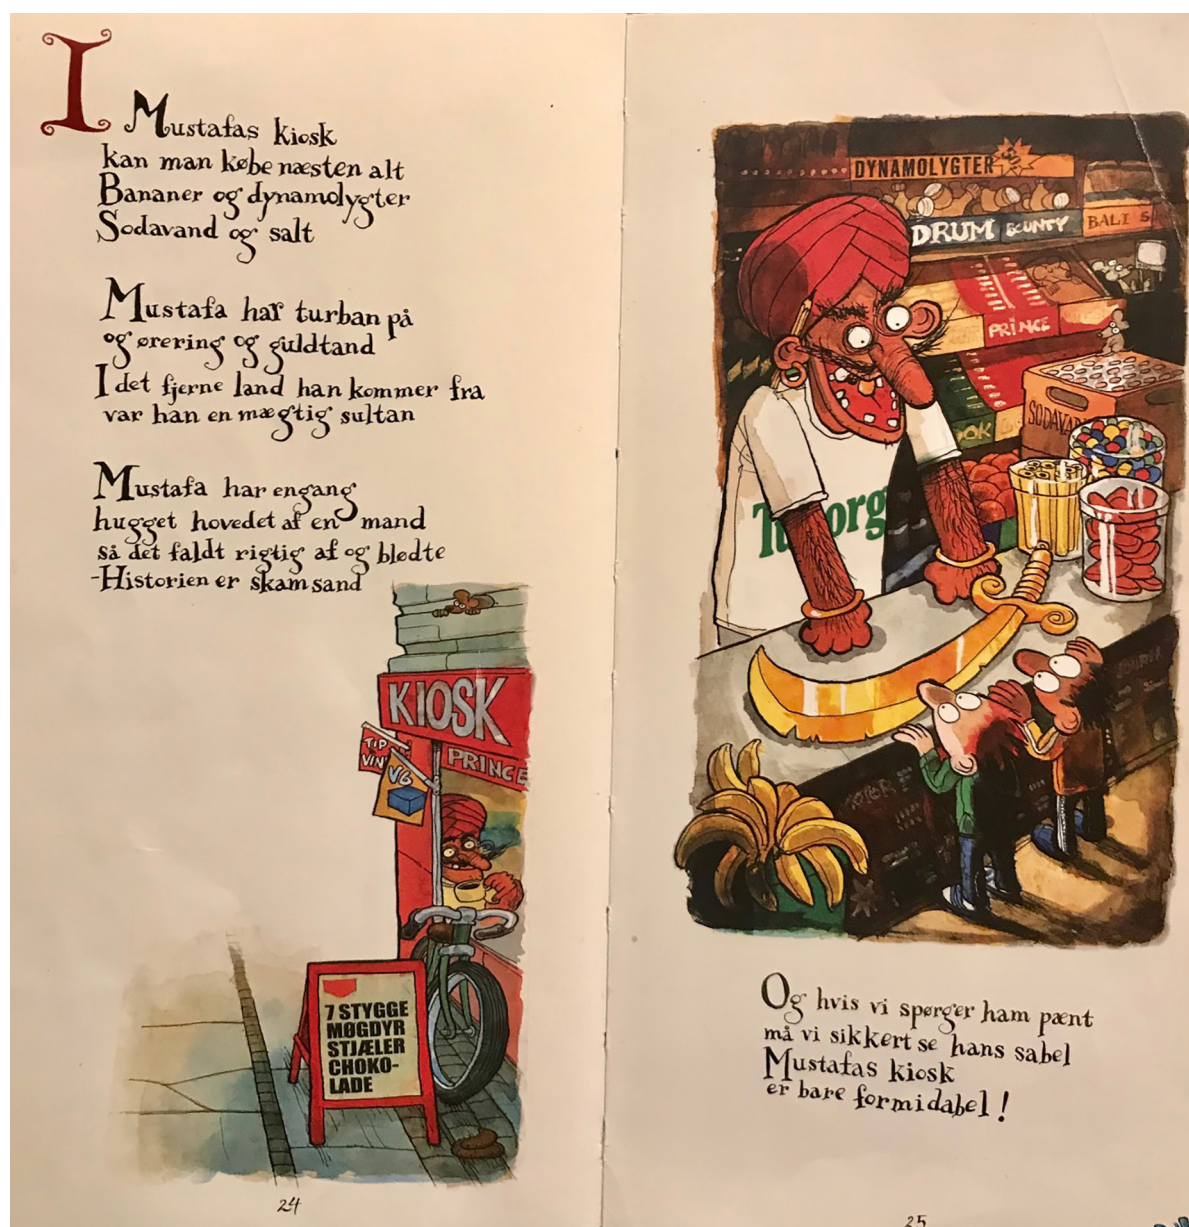 I Mustafas kiosk
kan man købe næsten alt
Bananer og dynamolygter
Sodavand og salt
Mustafa har turban på
og ørering og guldtand
I det fjerne land han kommer fra
var han en mægtig sultan
Mustafa har engang
hugget hovedet af en mand
så det faldt rigtig af og blødte
-Historien er skam sand
KIOSK
TIP
VIN
PRINCE
VG
7 STYGGE
MØGDYR
STJÆLER
CHOKO-
LADE
24
DYNAMOLYGTER
DRUM
BOUNTY
BALI S
PRINCE
SODAVA
OK
Tuborg
Og hvis vi spørger ham pænt
må vi sikkert se hans sabel
Mustafas kiosk
er bare formidabel!
25